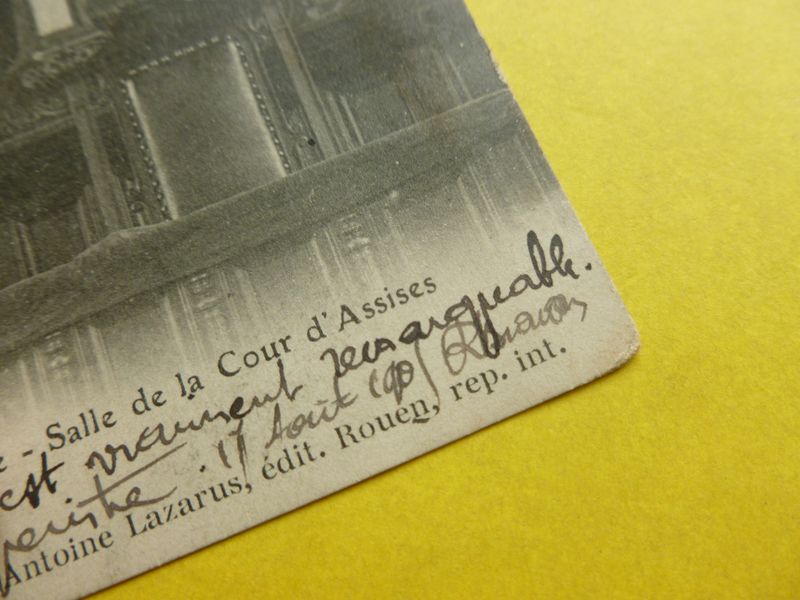 - Salle de la Cour d'Assises
est vraiment remarquable.
11 Août 190
Antoine Lazarus, édit. Rouen, rep. int.